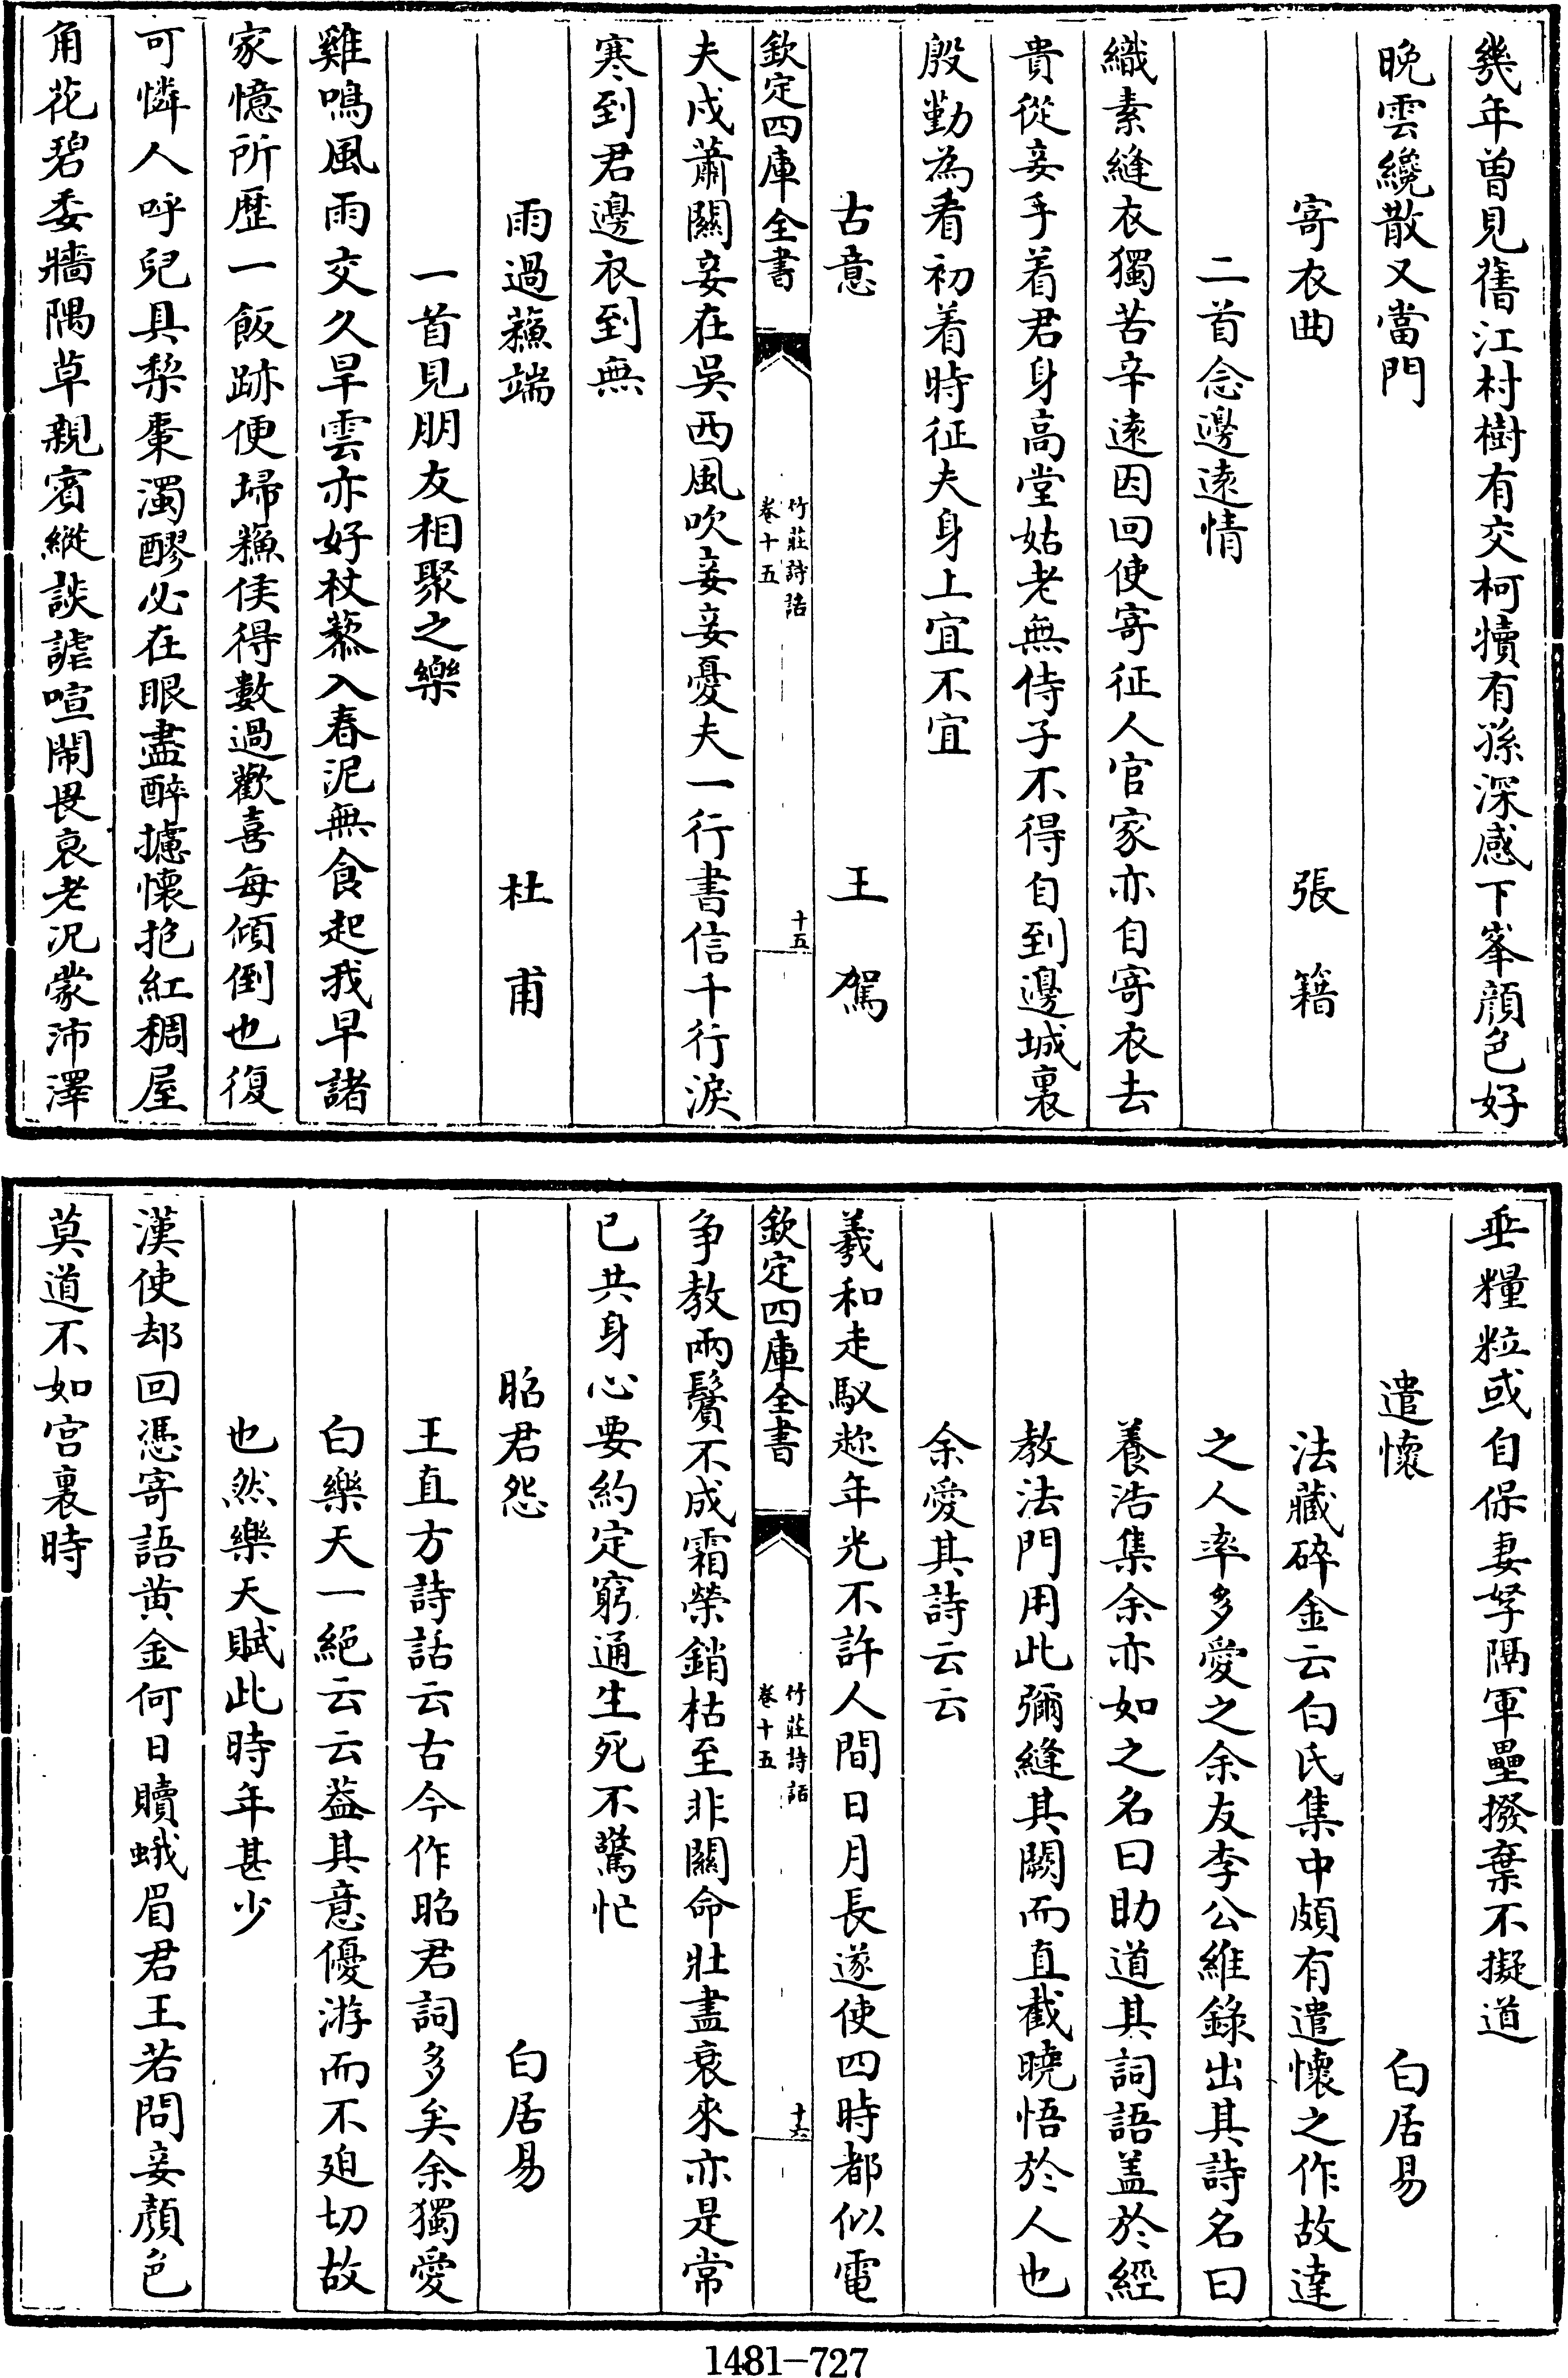 幾年曽見舊江村樹有交柯犢有孫深感下峯顔色好
晩雲纔散又當門
寄衣曲 張籍
二首念邊逺情
織素縫衣獨苦辛逺因回使寄征人官家亦自寄衣去
貴從妾手着君身高堂姑老無侍子不得自到邊城裏
殷勤為看初着時征夫身上宜不宜
古意 王駕
欽定四庫全書
竹莊詩話
卷十五
十五
夫戍蕭關妾在吳西風吹妾妾憂夫一行書信千行淚
寒到君邊衣到無
雨過蘓端 杜甫
一首見朋友相聚之樂
雞鳴風雨交久旱雲亦好杖藜入春泥無食起我早諸
家憶所歴一飯跡便埽蘓侯得數過歡喜每傾倒也復
可憐人呼兒具棃棗濁醪必在眼盡醉攄懷抱紅稠屋
角花碧委牆隅草親賓縱談謔喧鬧畏衰老况蒙沛澤
垂糧粒或自保妻孥隔軍壘撥棄不擬道
遣懷 白居易
法藏碎金云白氏集中頗有遣懷之作故達
之人率多愛之余友李公維錄出其詩名曰
養浩集余亦如之名曰助道其詞語盖於經
教法門用此彌縫其闕而直截曉悟於人也
余愛其詩云云
羲和走馭趂年光不許人間日月長遂使四時都似電
欽定四庫全書
竹莊詩話
卷十五
十六
争教兩鬢不成霜榮銷枯至非關命壯盡衰來亦是常
已共身心要約定窮通生死不驚忙
昭君怨 白居易
王直方詩話云古今作昭君詞多矣余獨愛
白樂天一絶云云葢其意優游而不廹切故
也然樂天賦此時年甚少
漢使却回憑寄語黄金何日贖蛾眉君王若問妾顔色
莫道不如宫裏時
1481-727